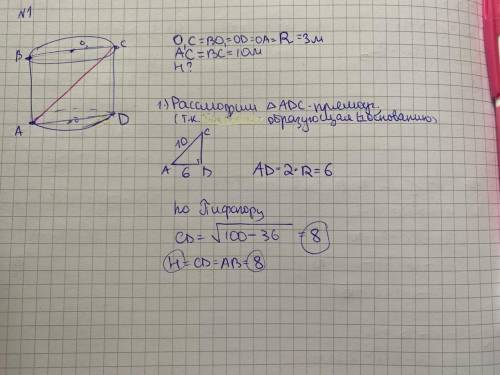 N1
O₁C=BO₁=OD=OA=R=3м
AC=BC=10м
H?
B O₁ C
A O D
1.) Рассмотрим △ADC-прямоуг.
(т.к. образующая ⊥ основанию)
10 C
A 6 D
AD=2·R=6
по Пифагору
CD=√100-36=8
H=CD=AB=8